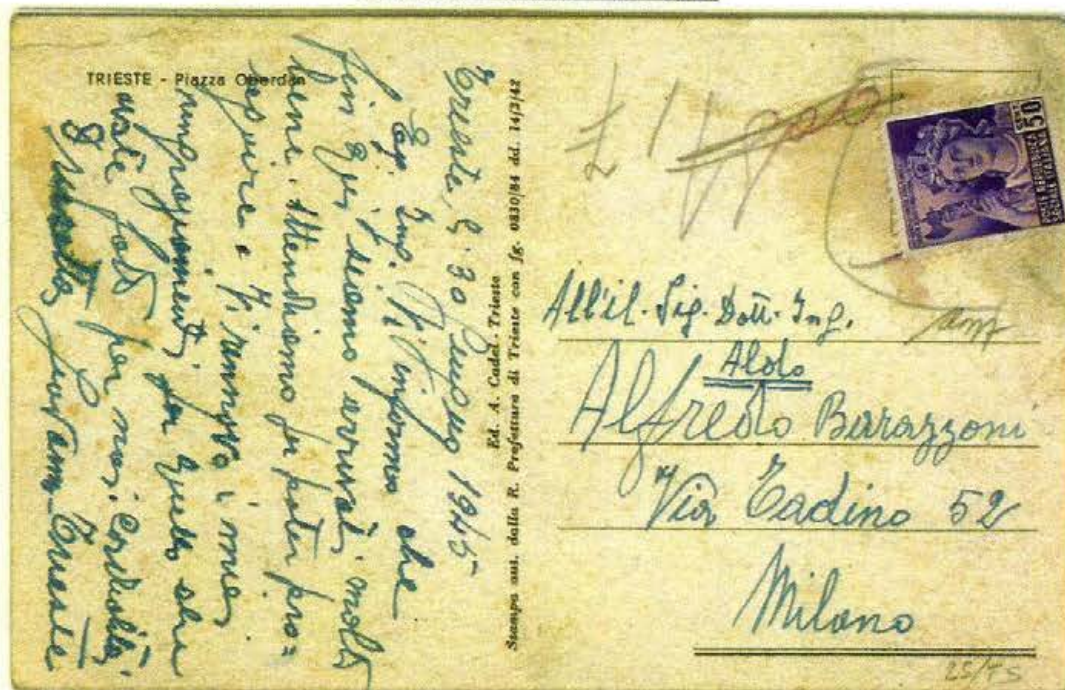 TRIESTE - Piazza Oberdan
Trieste li 30 Giugno 1945
Eg. Ing. Vi informo che
fin qui siamo arrivati molto
bene. Attendiamo per poter pro=
seguire. Vi rinnovo i miei
ringraziamenti per quello che
avete fatto per noi. Cordialità.
Giovanni Trieste
Ed. A. Cadel - Trieste
Stampa aut. dalla R. Prefettura di Trieste con fg. 0830/84 dd. 14/3/42
POSTE REPUBBLICA
SOCIALE ITALIANA
CENT. 50
All'il. Sig. Dott. Ing.
Aldo
Alfredo Barazzoni
Via Tadino 52
Milano
25/75